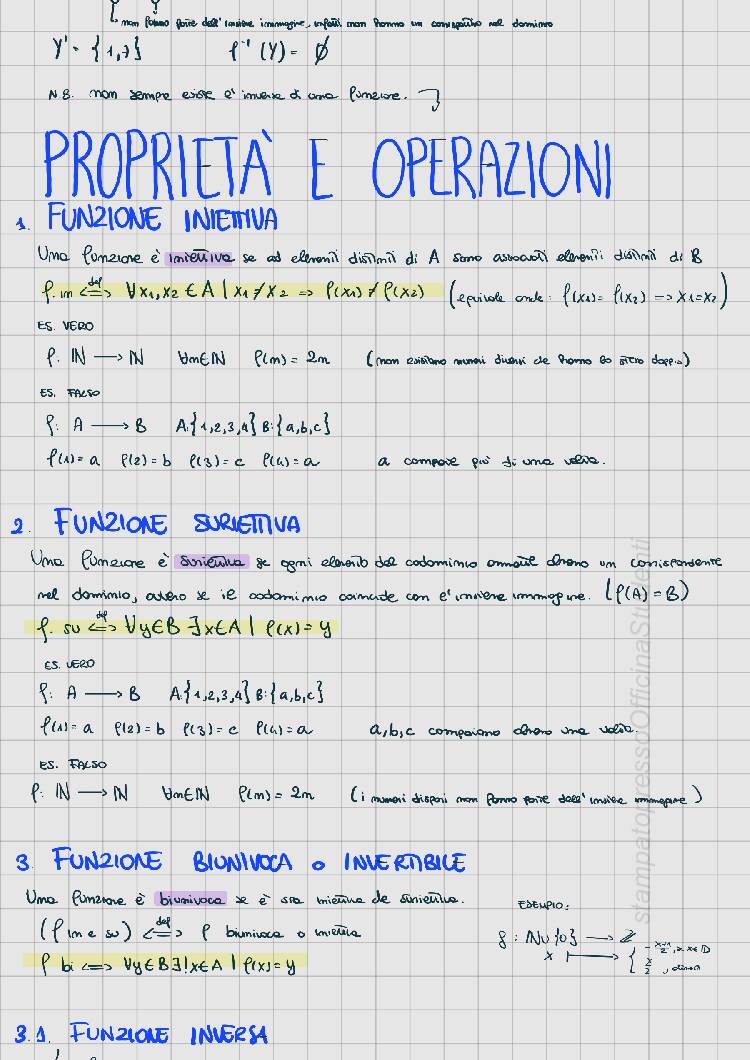 non fanno parte dell'insieme immagine, infatti non hanno un corrispettivo nel dominio
Y' = {1,7} f⁻¹(Y) = ∅
N.B. non sempre esiste l'inversa di una funzione.
PROPRIETÀ E OPERAZIONI
1. FUNZIONE INIETTIVA
Una funzione è iniettiva se ad elementi distinti di A sono associati elementi distinti di B
f. in ⇐def⇒ ∀x₁,x₂ ∈ A | x₁ ≠ x₂ => f(x₁) ≠ f(x₂) (equivale anche: f(x₁) = f(x₂) => x₁=x₂)
ES. VERO
f: ℕ → ℕ ∀n∈ℕ f(n) = 2n (non esistono numeri diversi che hanno lo stesso doppio)
ES. FALSO
f: A → B A:{1,2,3,4} B:{a,b,c}
f(1)=a f(2)=b f(3)=c f(4)=a a compare più di una volta.
2. FUNZIONE SURIETTIVA
Una funzione è suriettiva se ogni elemento del codominio ammette almeno un corrispondente
nel dominio, ovvero se il codominio coincide con l'insieme immagine. (f(A) = B)
f. su ⇐def⇒ ∀y∈B ∃x∈A | f(x) = y
ES. VERO
f: A → B A:{1,2,3,4} B:{a,b,c}
f(1)=a f(2)=b f(3)=c f(4)=a a,b,c compaiono almeno una volta.
ES. FALSO
f: ℕ → ℕ ∀n∈ℕ f(n) = 2n (i numeri dispari non fanno parte dell'insieme immagine)
3 FUNZIONE BIUNIVOCA o INVERTIBILE
Una funzione è biunivoca se è sia iniettiva che suriettiva.
ESEMPIO:
(f in e su) ⇐def⇒ f biunivoca o iniettiva
g: ℕ∪{0} → ℤ
x ↦ { -x+1/2, se x∈D
x/2, altrimenti
f bi <=> ∀y∈B ∃!x∈A | f(x) = y
3.1. FUNZIONE INVERSA
stampatopressoOfficinaStudenti